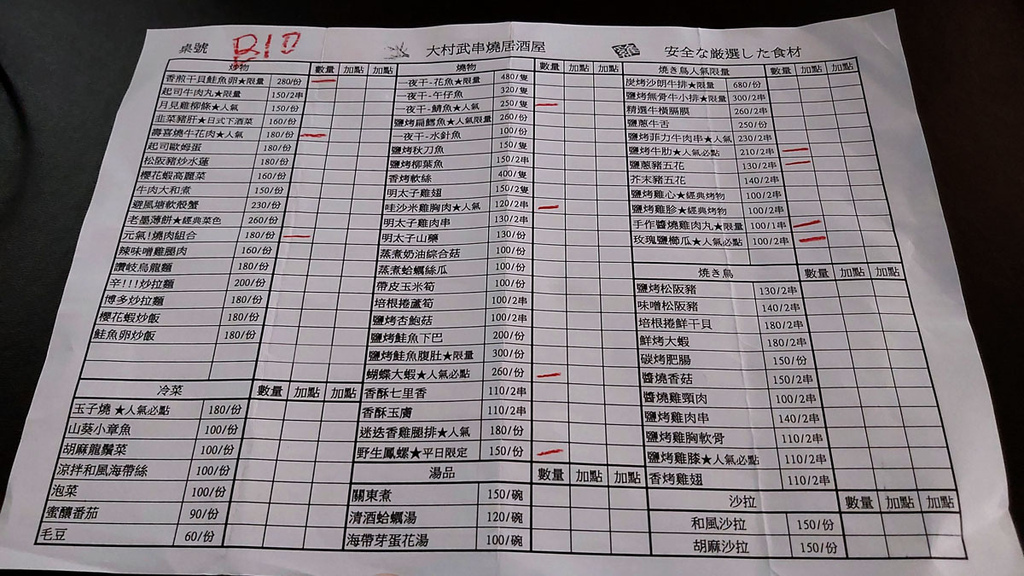 桌號 B10 大村武串燒居酒屋 安全な厳選した食材
炒物 數量 加點 加點
香煎干貝鮭魚卵★限量 280/份
起司牛肉丸★限量 150/2串
月見雞柳條★人氣 160/份
韭菜豬肝★日式下酒菜 160/份
壽喜燒牛花肉★人氣 180/份
起司歐姆蛋 180/份
松阪豬炒水蓮 180/份
櫻花蝦高麗菜 160/份
牛肉大和煮 150/份
避風塘軟殼蟹 230/份
老墨薄餅★經典菜色 260/份
元氣!燒肉組合 180/份
辣味噌雞腿肉 160/份
讚岐烏龍麵 180/份
辛!!!炒拉麵 200/份
博多炒拉麵 180/份
櫻花蝦炒飯 180/份
鮭魚卵炒飯 180/份
冷菜 數量 加點 加點
玉子燒 ★人氣必點 180/份
山葵小章魚 100/份
胡麻龍鬚菜 100/份
涼拌和風海帶絲 100/份
泡菜 100/份
蜜釀番茄 90/份
毛豆 60/份
燒物 數量 加點 加點
一夜干-花魚★限量 480/隻
一夜干-午仔魚 320/隻
一夜干-鯖魚★人氣 250/隻
鹽烤扁鱈魚★人氣限量 260/份
一夜干-水針魚 100/份
鹽烤秋刀魚 150/隻
鹽烤柳葉魚 150/2串
香烤軟絲 400/隻
明太子雞翅 150/2串
哇沙米雞胸肉★人氣 120/2串
明太子雞肉串 130/2串
明太子山藥 130/份
蒸煮奶油綜合菇 100/份
蒸煮蛤蠣絲瓜 100/份
帶皮玉米筍 100/份
培根捲蘆筍 100/2串
鹽烤杏鮑菇 100/2串
鹽烤鮭魚下巴 200/份
鹽烤鮭魚腹肚★限量 300/份
蝴蝶大蝦★人氣必點 260/份
香酥七里香 110/2串
香酥玉膚 110/2串
迷迭香雞腿排★人氣 180/份
野生鳳螺★平日限定 150/份
湯品 數量 加點 加點
關東煮 150/碗
清酒蛤蠣湯 120/碗
海帶芽蛋花湯 100/碗
焼き鳥人氣限量 數量 加點 加點
炭烤沙朗牛排★限量 680/份
鹽烤無骨牛小排★限量 300/2串
精選牛橫膈膜 260/2串
鹽蔥牛舌 250/份
鹽烤菲力牛肉串★人氣 230/2串
鹽烤牛肋★人氣必點 210/2串
鹽蔥豬五花 130/2串
芥末豬五花 140/2串
鹽烤雞心★經典烤物 100/2串
鹽烤雞胗★經典烤物 100/2串
手作醬燒雞肉丸★限量 100/1串
玫瑰鹽櫛瓜★人氣必點 100/2串
焼き鳥 數量 加點 加點
鹽烤松阪豬 130/2串
味噌松阪豬 140/2串
培根捲鮮干貝 180/2串
鮮烤大蝦 180/2串
碳烤肥腸 150/份
醬燒香菇 150/2串
醬燒雞頸肉 100/2串
鹽烤雞肉串 140/2串
鹽烤雞胸軟骨 110/2串
鹽烤雞膝★人氣必點 110/2串
香烤雞翅 110/2串
沙拉 數量 加點 加點
和風沙拉 150/份
胡麻沙拉 150/份